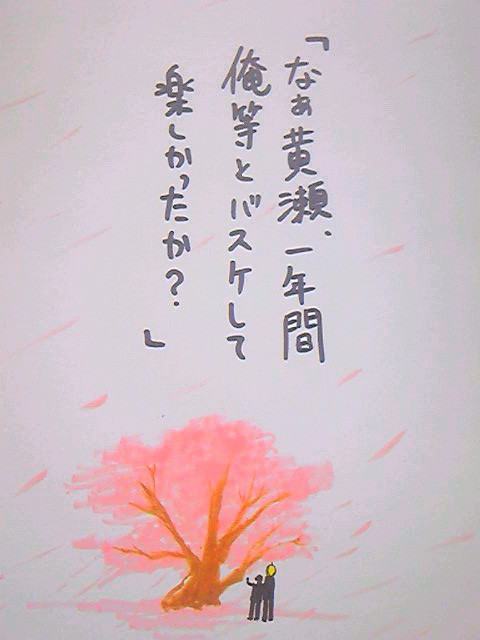 「なぁ黄瀬、一年間
俺等とバスケして
楽しかったか？」